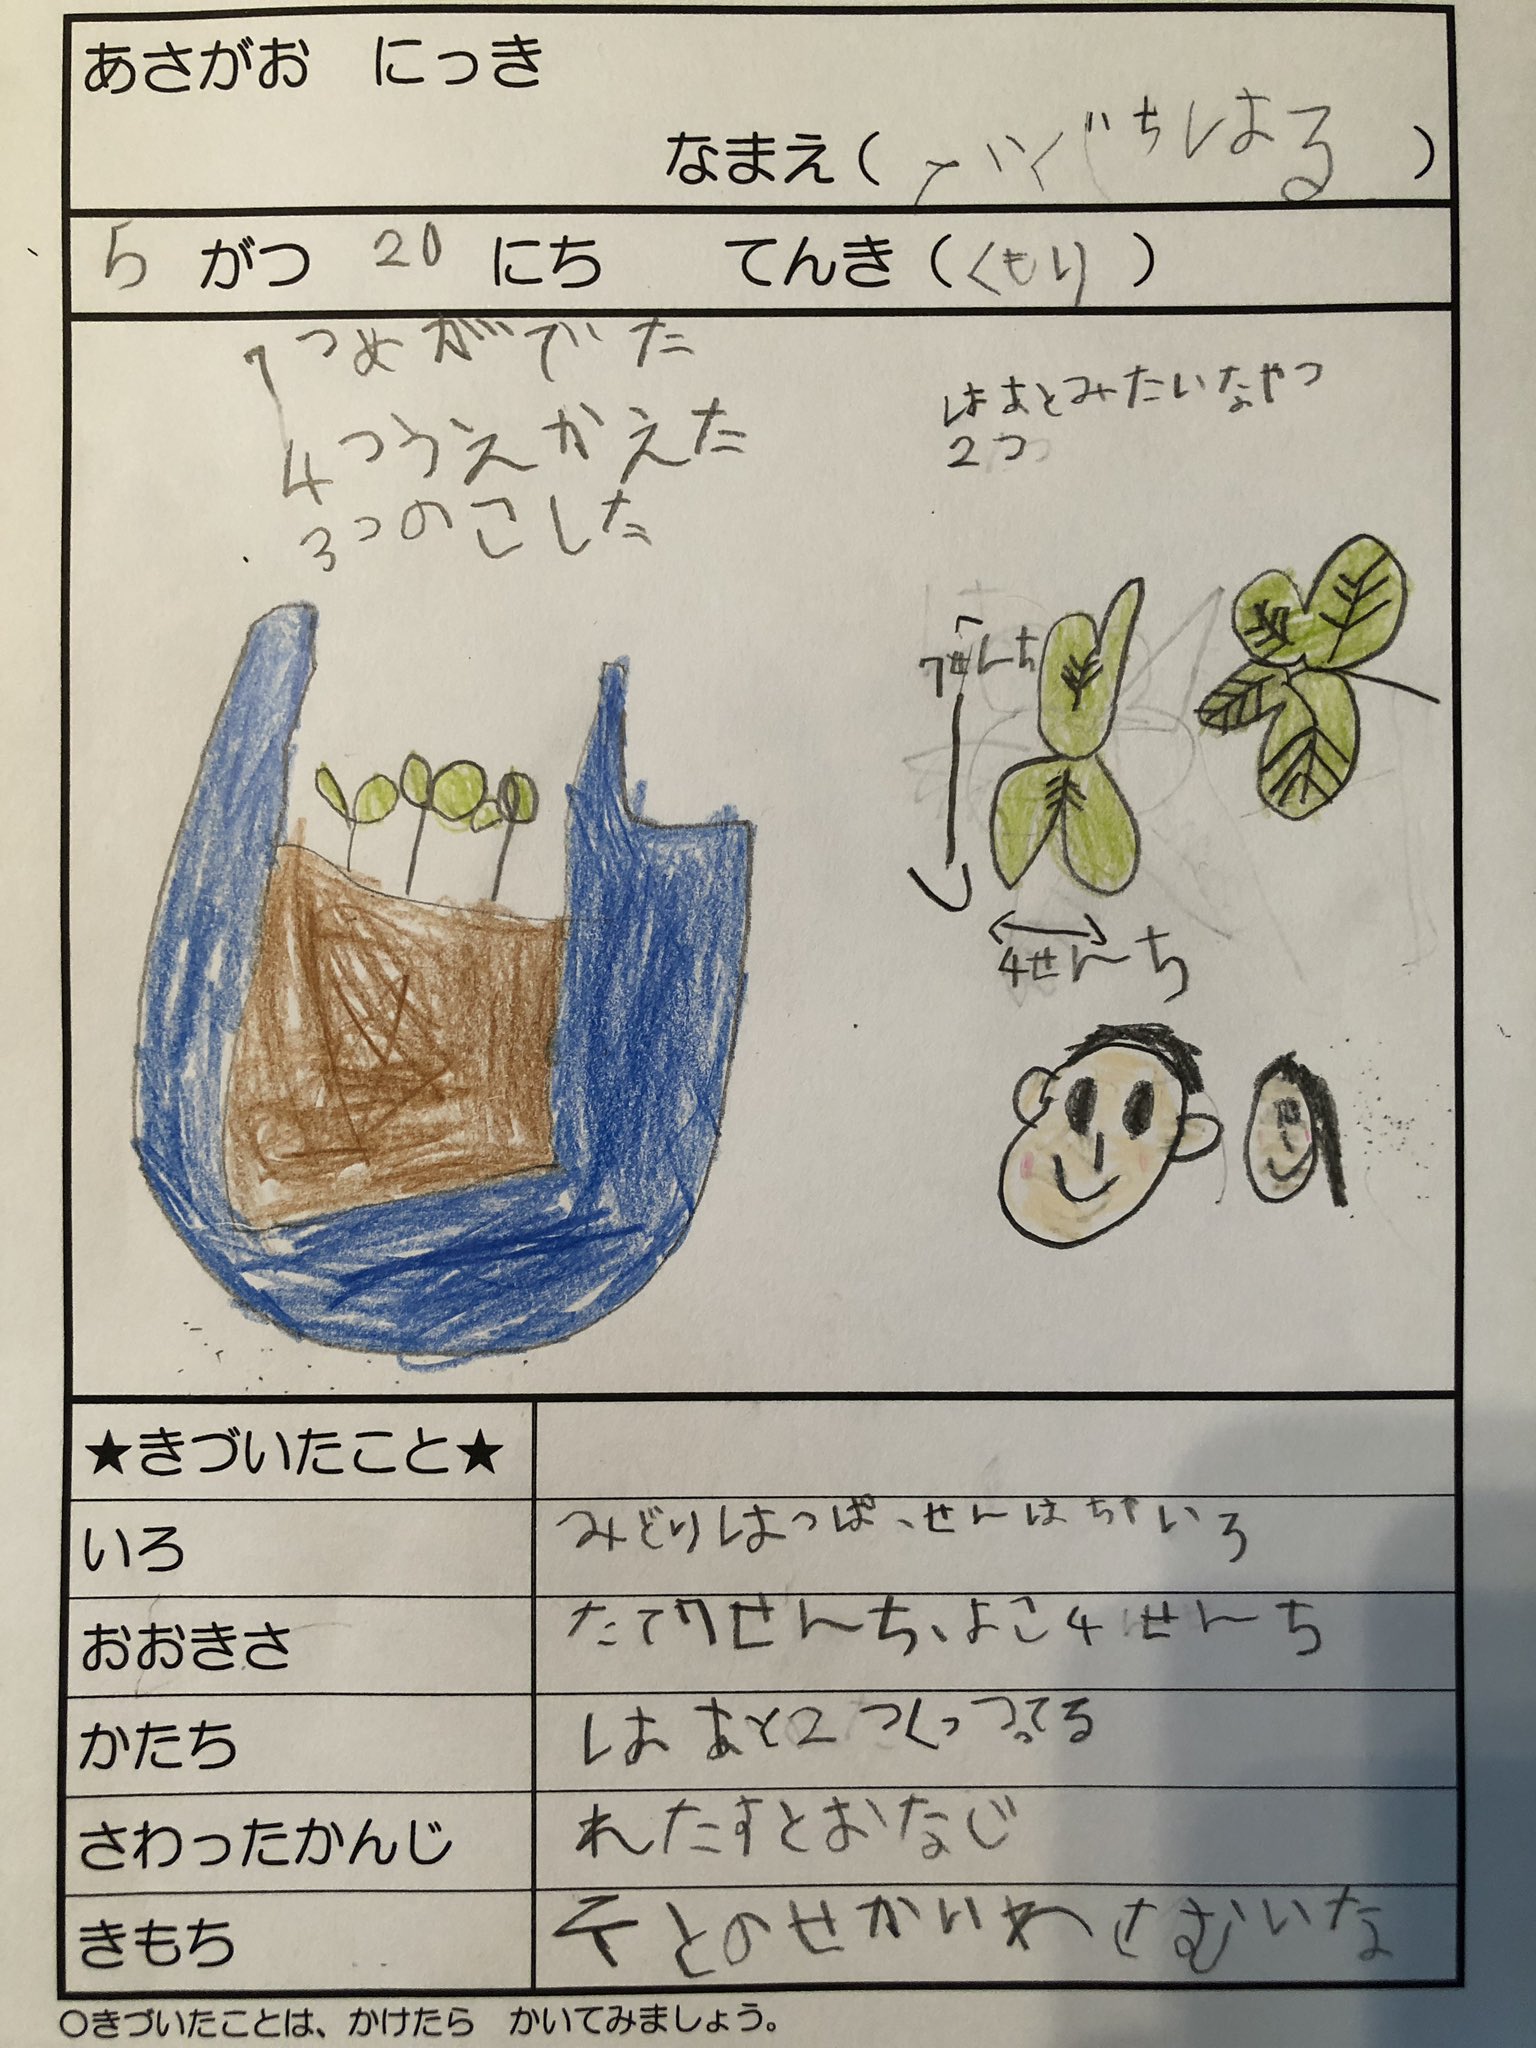 あさがお にっき
なまえ( ぐちはる )
5 がつ 20 にち てんき(くもり)
7つめがでた
4つうえかえた
3つのこした
はあとみたいなやつ
2つ
7せんち
4せんち
★きづいたこと★
いろ みどりはっぱ、せんはちゃいろ
おおきさ たて7せんち、よこ4せんち
かたち はあと2つくっつってる
さわったかんじ れたすとおなじ
きもち そとのせかいわさむいな
○きづいたことは、かけたら かいてみましょう。